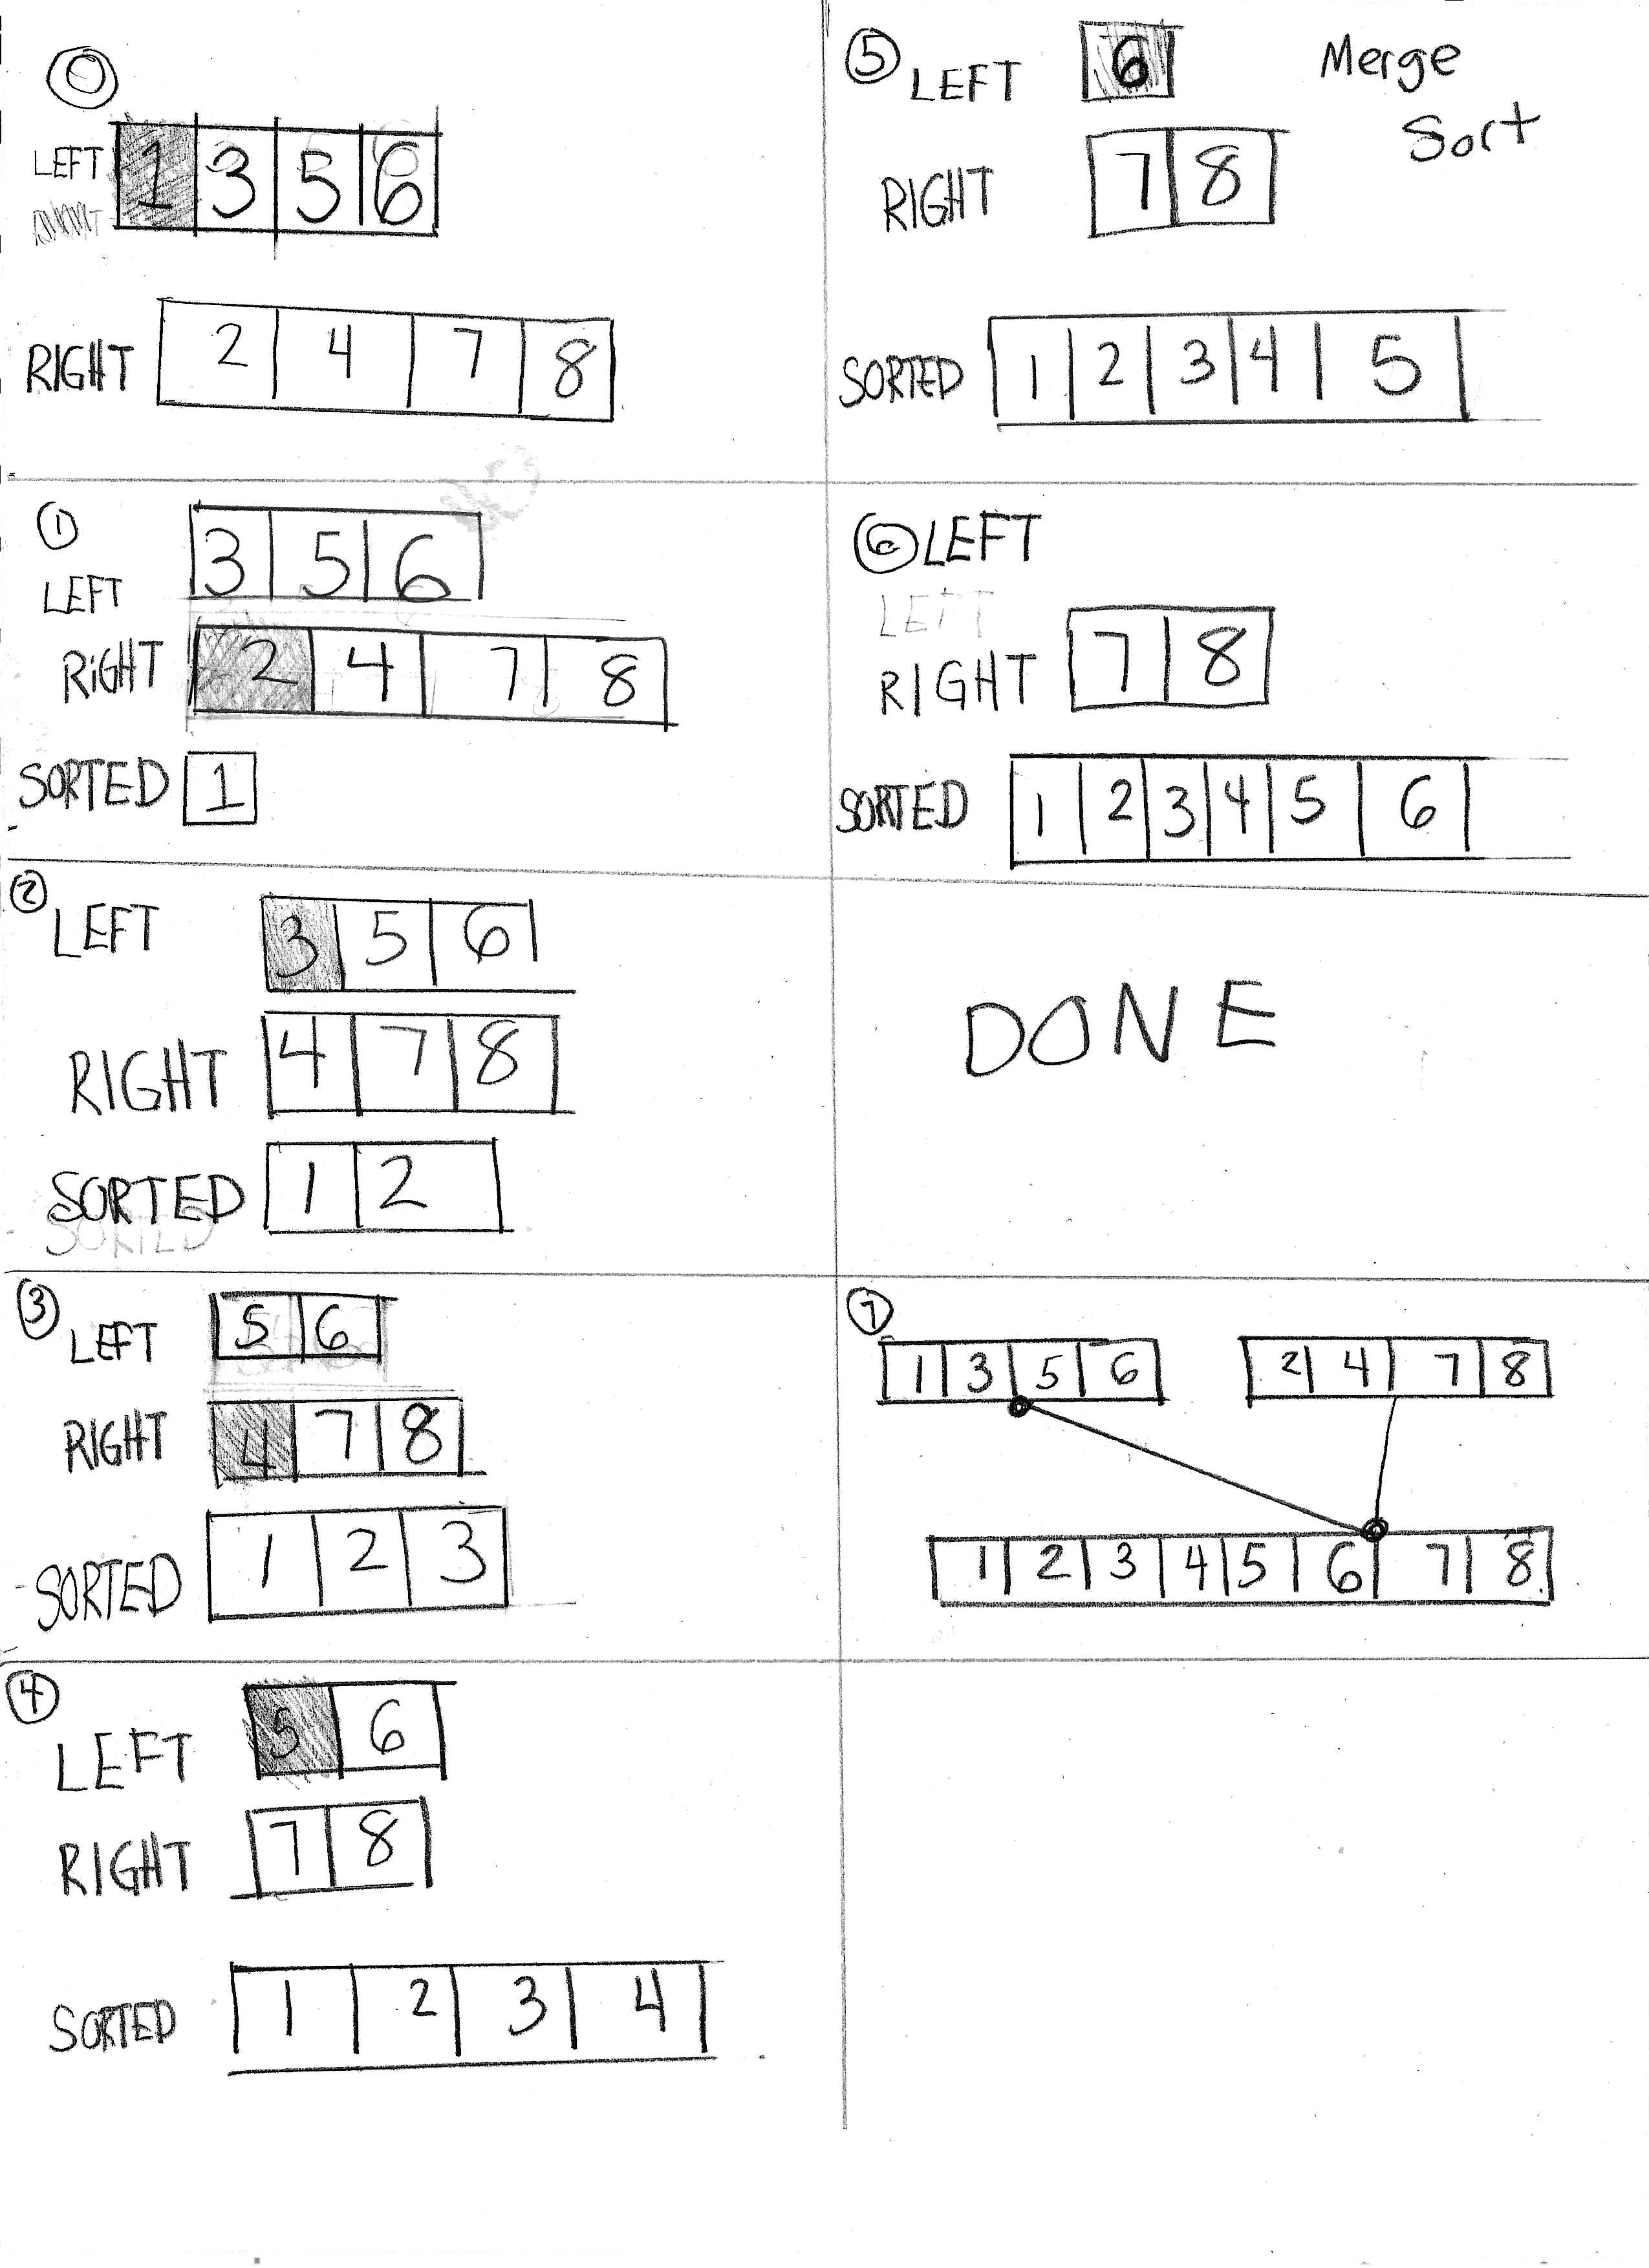 0
LEFT 1 3 5 6
RIGHT 2 4 7 8
1
LEFT 3 5 6
RiGHT 2 4 7 8
SORTED 1
2
LEFT 3 5 6
RIGHT 4 7 8
SORTED 1 2
3
LEFT 5 6
RIGHT 4 7 8
SORTED 1 2 3
4
LEFT 5 6
RIGHT 7 8
SORTED 1 2 3 4
5
LEFT 6
RIGHT 7 8
Merge
Sort
SORTED 1 2 3 4 5
6 LEFT
RIGHT 7 8
SORTED 1 2 3 4 5 6
DONE
7
1 3 5 6
2 4 7 8
1 2 3 4 5 6 7 8